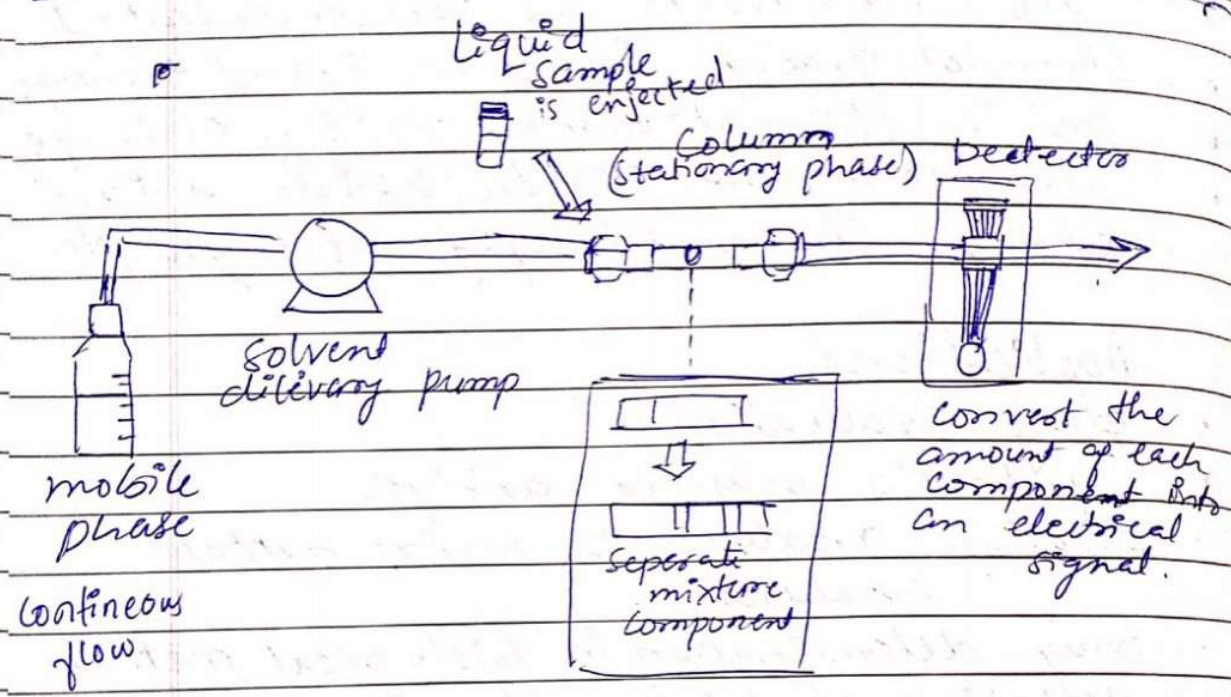 Liquid
sample
is enjected
Column
(stationary phase)
Dectector
solvent
dilivary pump
mobile
phase
contineous
flow
seperate
mixture
component
convert the
amount of each
component into
an electrical
signal.